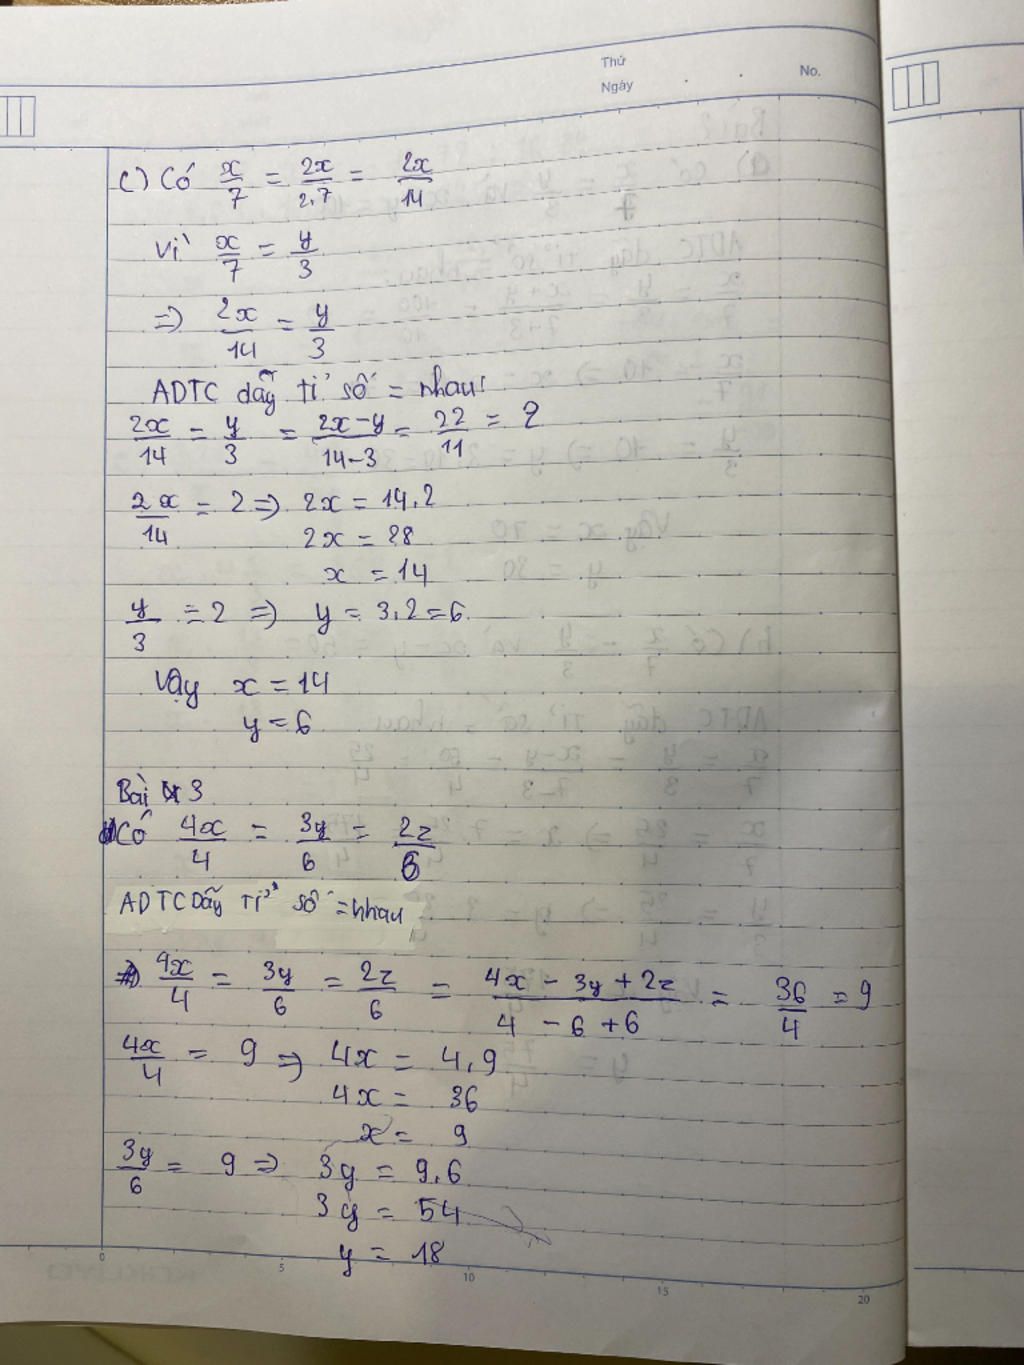 Thứ
Ngày
No.
c) Có x/7 = 2x/2.7 = 2x/14
Vì x/7 = y/3
=> 2x/14 = y/3
ADTC dãy tỉ số = nhau:
2x/14 = y/3 = 2x-y/14-3 = 22/11 = 2
2x/14 = 2 => 2x = 14.2
2x = 28
x = 14
y/3 = 2 => y = 3.2 = 6
Vậy x = 14
y = 6
Bài 3
Có 4x/4 = 3y/6 = 2z/6
ADTC Dãy Tỉ số = nhau
=> 4x/4 = 3y/6 = 2z/6 = 4x - 3y + 2z/4 - 6 + 6 = 36/4 = 9
4x/4 = 9 => 4x = 4.9
4x = 36
x = 9
3y/6 = 9 => 3y = 9.6
3y = 54
y = 18
0 5 10 15 20